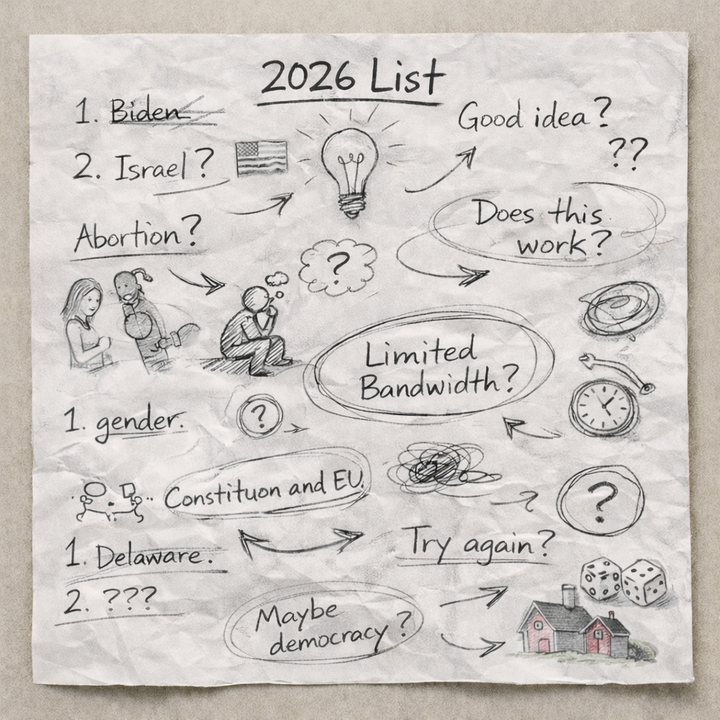 2026 List
1. Biden
Good idea?
??
2. Israel?
Does this
work?
Abortion?
?
Limited
Bandwidth?
1. gender.
?
Constituon and EU.
?
?
1. Delaware.
Try again?
2. ???
Maybe
democracy?